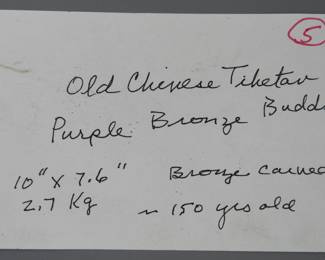 5
Old Chinese Tibetan
Purple Bronze Budd
10" x 7.6" Bronze carved
2.7 Kg ~ 150 yrs old